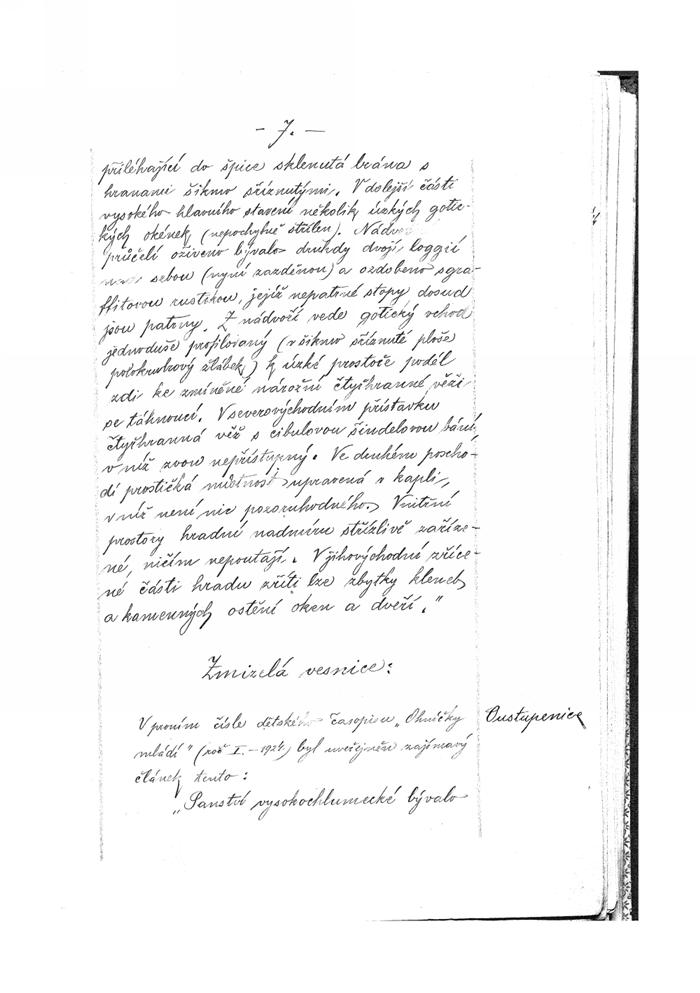 - 7. -
přiléhající do špice sklenutá brána s
hranami šikmo sříznutými. V dolejší části
vysokého hlavního stavení několik úzkých gotic-
kých okének (nepochybně střílen). Nádvor
průčelí oživeno bývalo druhdy dvojí loggií
nad sebou (nyní zazděnou) a ozdobeno sgra-
ffitovou rustikou, jejíž nepatrné stopy dosud
jsou patrny. Z nádvoří vede gotický vchod
jednoduše profilovaný (v šikmo sříznuté ploše
polokruhový žlábek) k úzké prostoře podél
zdi ke zmíněné nárožní čtyřhranné věži
se táhnoucí. V severovýchodním přístavku
čtyřhranná věž s cibulovou šindelovou bání,
v níž zvon nepřístupný. Ve druhém poscho-
dí prostičká místnost upravená v kapli,
v níž není nic pozoruhodného. Vnitřní
prostory hradní nadmíru střízlivě zaříze-
né, ničím nepoutají. V jihovýchodné zříce-
né části hradu zříti lze zbytky kleneb
a kamenných ostění oken a dveří."
Zmizelá vesnice:
V prvním čísle dětského časopisu „Ohníčky
Oustupenice
mládí" (roč I. - 1924) byl uveřejněn zajímavý
článek tento:
„Panství vysokochlumecké bývalo